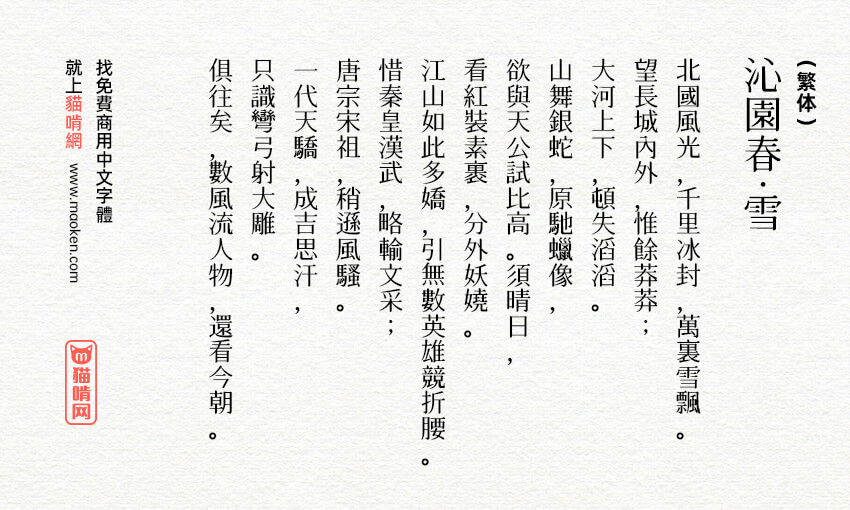 (繁体)
沁園春·雪
北國風光,千里冰封,萬裏雪飄。
望長城內外,惟餘莽莽;
大河上下,頓失滔滔。
山舞銀蛇,原馳蠟像,
欲與天公試比高。須晴日,
看紅裝素裹,分外妖嬈。
江山如此多嬌,引無數英雄競折腰。
惜秦皇漢武,略輸文采;
唐宗宋祖,稍遜風騷。
一代天驕,成吉思汗,
只識彎弓射大雕。
俱往矣,數風流人物,還看今朝。
找免費商用中文字體
就上貓啃網 www.mooken.com
m
猫啃网